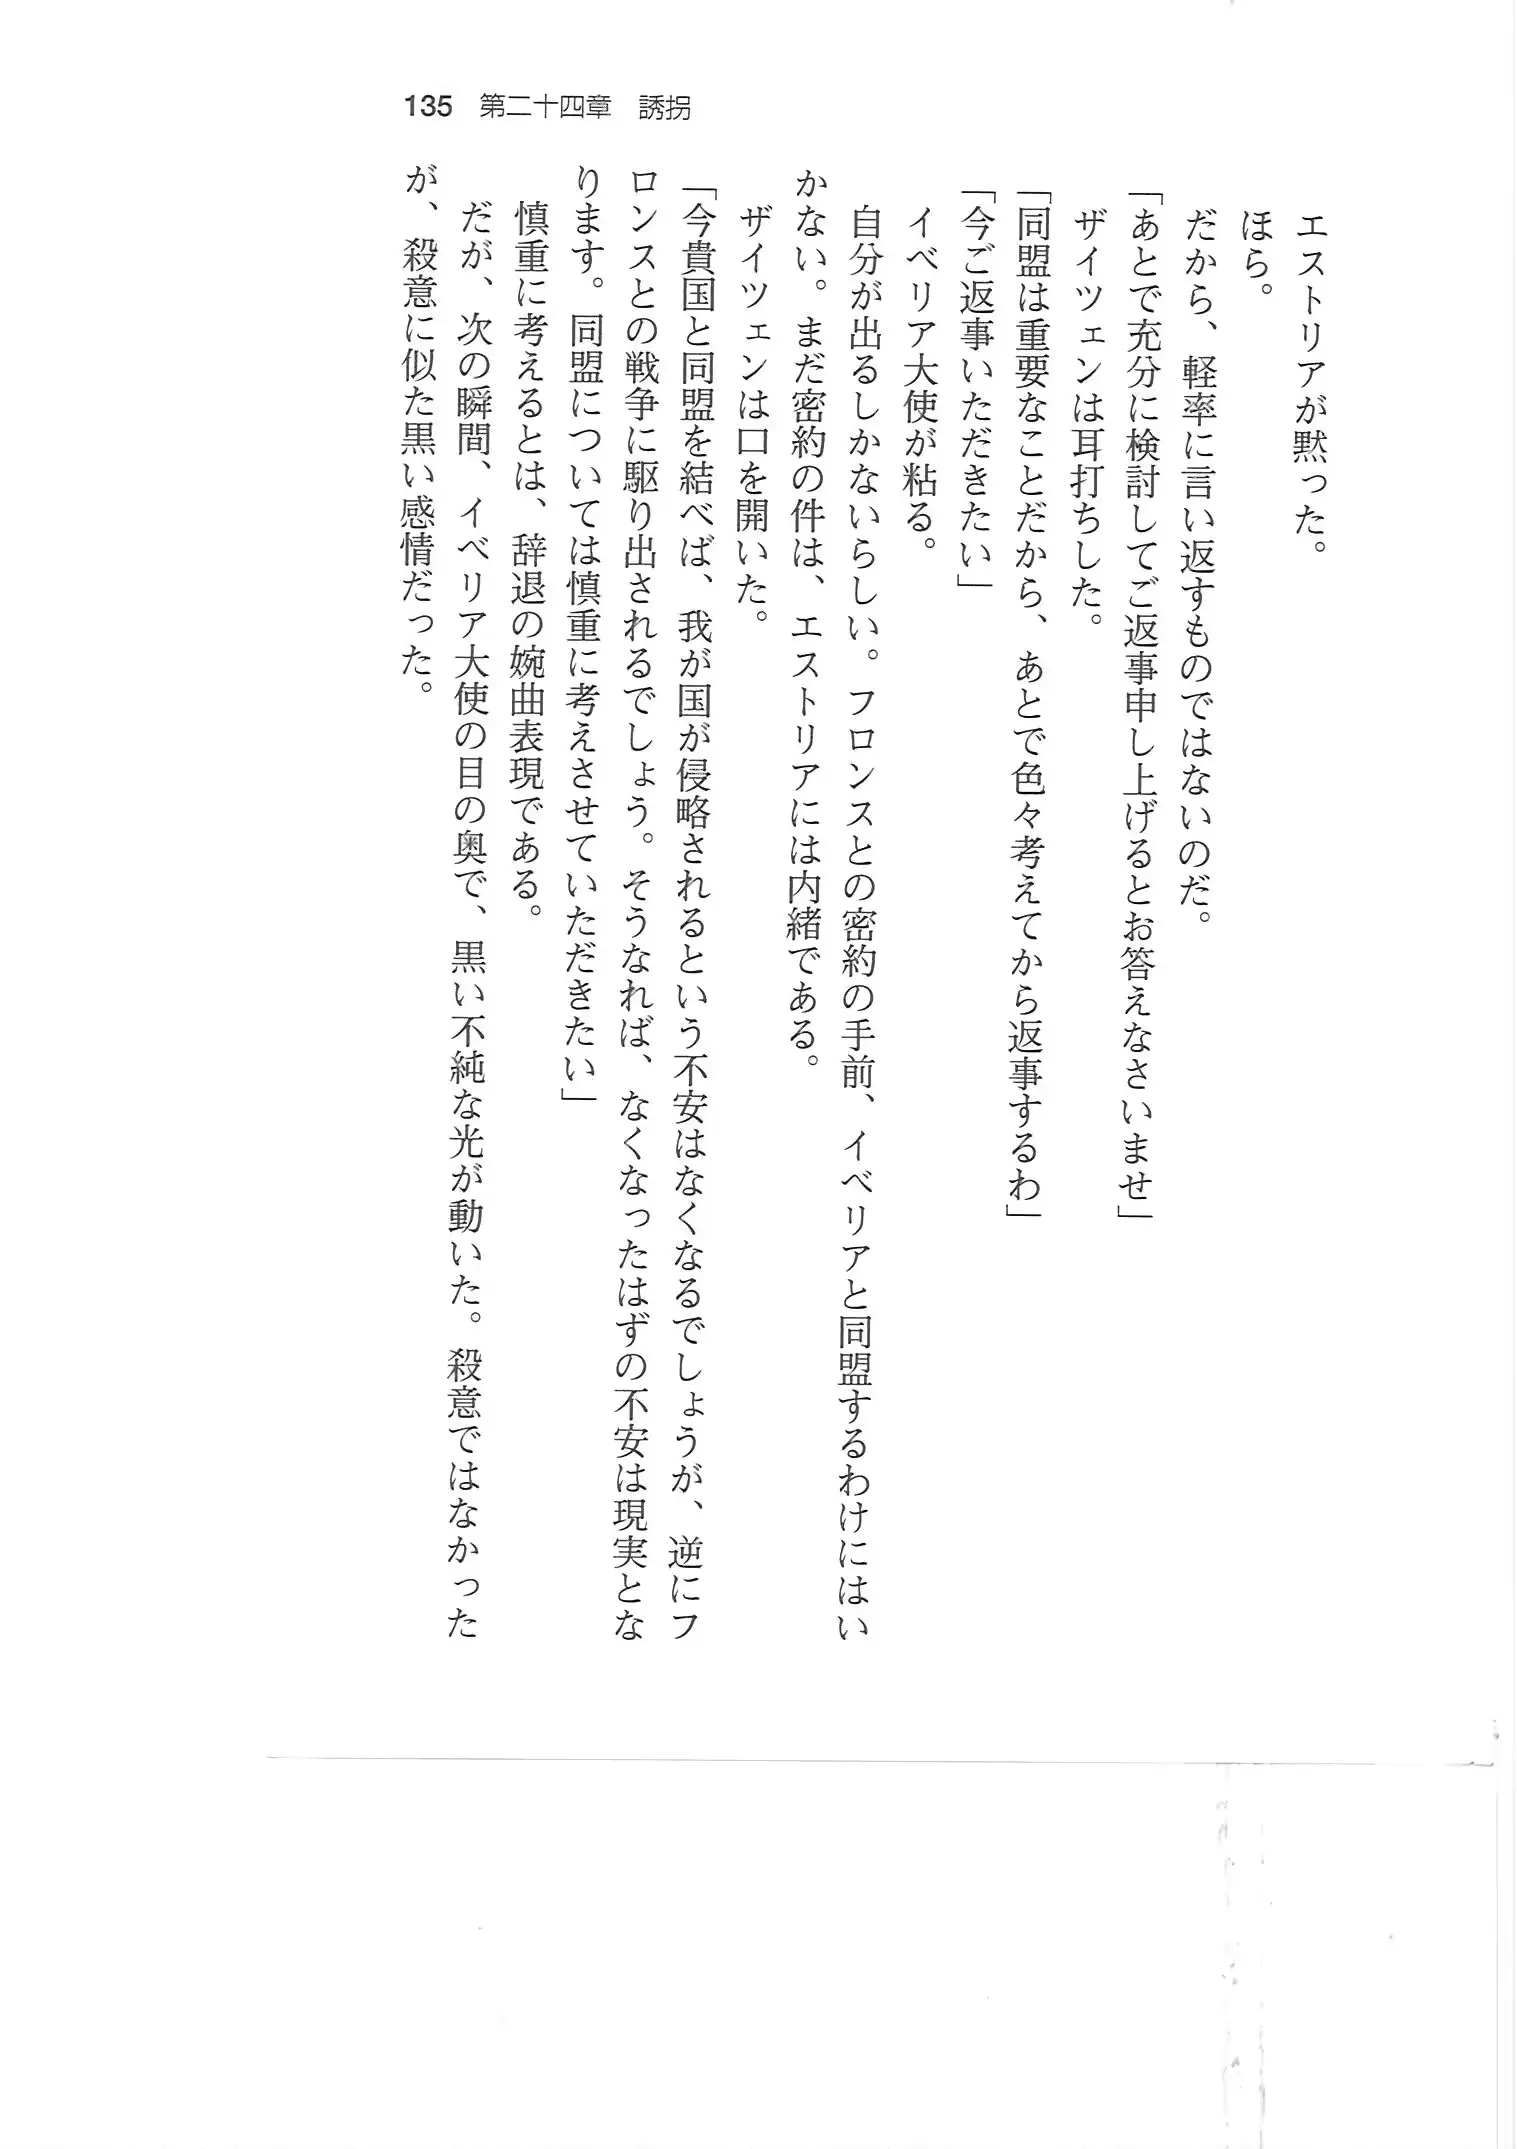 135 第二十四章 誘拐
エストリアが黙った。
ほら。
だから、軽率に言い返すものではないのだ。
「あとで充分に検討してご返事申し上げるとお答えなさいませ」
ザイツェンは耳打ちした。
「同盟は重要なことだから、あとで色々考えてから返事するわ」
「今ご返事いただきたい」
イベリア大使が粘る。
自分が出るしかないらしい。フロンスとの密約の手前、イベリアと同盟するわけにはい
かない。まだ密約の件は、エストリアには内緒である。
ザイツェンは口を開いた。
「今貴国と同盟を結べば、我が国が侵略されるという不安はなくなるでしょうが、逆にフ
ロンスとの戦争に駆り出されるでしょう。そうなれば、なくなったはずの不安は現実とな
ります。同盟については慎重に考えさせていただきたい」
慎重に考えるとは、辞退の婉曲表現である。
だが、次の瞬間、イベリア大使の目の奥で、黒い不純な光が動いた。殺意ではなかった
が、殺意に似た黒い感情だった。